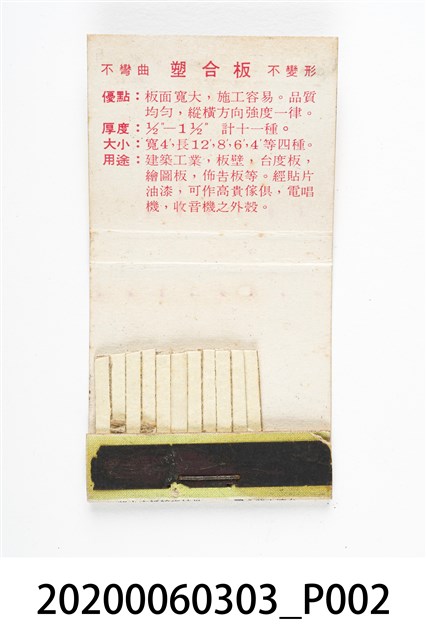 不彎曲 塑合板 不變形
優點：板面寬大，施工容易。品質
均勻，縱橫方向強度一律。
厚度：½"—1½" 計十一種。
大小：寬4',長12',8',6',4'等四種。
用途：建築工業，板壁，台度板，
繪圖板，佈告板等。經貼片
油漆，可作高貴傢俱，電唱
機，收音機之外殼。
20200060303_P002